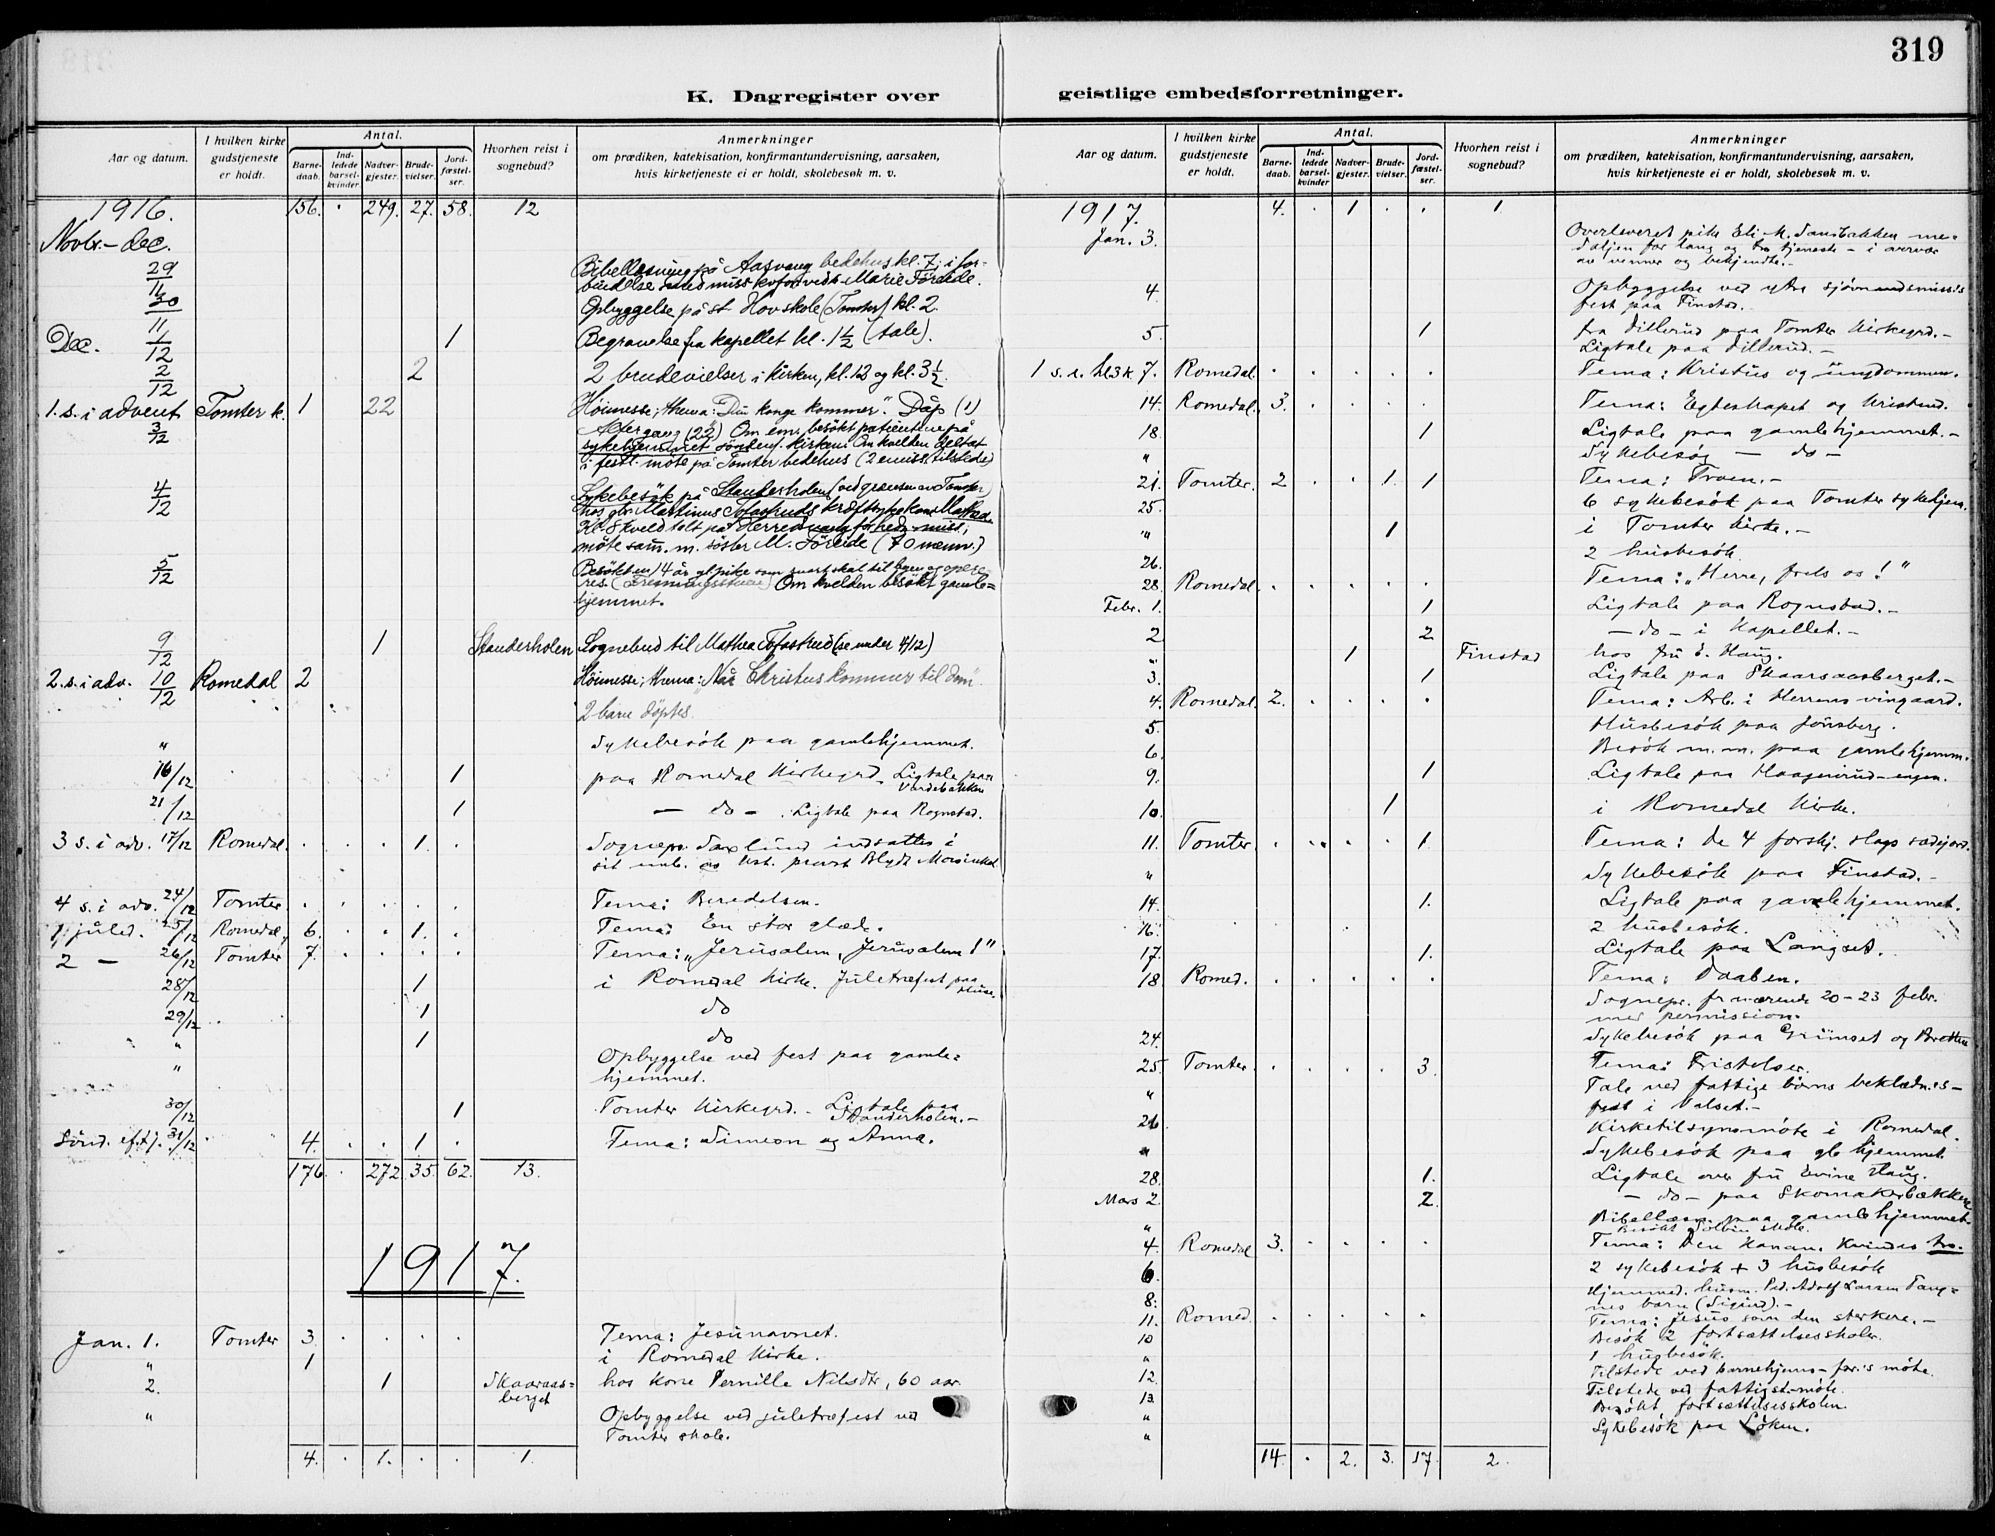 319
K. Dagregister over geistlige embedsforretninger.
Aar og datum.
I hvilken kirke gudstjeneste er holdt.
Antal.
Barne-daab.
Ind-ledede barsel-kvinder.
Nadver-gjester.
Brude-vielser.
Jord-fæstel-ser.
Hvorhen reist i sognebud?
Anmerkninger
om prædiken, katekisation, konfirmantundervisning, aarsaken,
hvis kirketjeneste ei er holdt, skolebesøk m. v.
1916. 156. . 249. 27. 58. 12
Novbr.-dec.
29/11 Bibellæsning på Aasvang bedehus kl. 7, i for-
bindelse med Marie Föreide.
30/11 Opbyggelse på st Hov skole (Tomter) kl. 2.
Dec. 1/12 1 Begravelse fra kapellet kl. 1½ (tale).
2/12 2 2 brudevielser i kirken, kl. 12 og kl. 3½.
1. s. i advent 3/12 Tomter k. 1 22 Höimesse; thema: "Din konge kommer". Dåp (1)
Altergang (22) Om em. besökt patienterne på
sykehjemmet kirken. Om kvelden deltat
i festl. möte på Tomter bedehus (2 emiss. tilstede)
4/12 Sykebesök på Standerholen (ved grænsen av Tomter)
hos Martinus Tofastruds kræftsyke kone Mathea.
Kl. 8 kveld talt på miss.
möte sam. m. söster M. Föreide (70 )
5/12 Besökt en 14 år gl. pike som snart skal til
Om kvelden besökt gamle=
hjemmet.
9/12 1 Standerholen Sognebud til Mathea Tofastrud (se under 4/12)
2. s. i adv. 10/12 Romedal 2 Höimesse; thema: "Når Christus kommer til dom".
2 barn döptes.
" Sykebesök paa gamlehjemmet.
16/12 1 paa Romedal Kirkegrd. Ligtale paa
Vardebakken
21/12 1 - do - . Ligtale paa Rognstad.
3 s. i adv. 17/12 Romedal . . . 1. . Sognepr. Saxlund indsattes i
sit emb. av kst. provst Blydt
4 s. i adv. 24/12 Tomter . . . . . Tema: Beredelsen.
1 juled. 25/12 Romedal 6. . . 1. . Tema: En stor glæde.
2 - 26/12 Tomter 7. . . . . Tema: "Jerusalem, Jerusalem!"
28/12 1 i Romedal Kirke. Juletræfest paa
29/12 1 do
" 1 do
" Opbyggelse ved fest paa gamle=
hjemmet.
30/12 1 Tomter Kirkegrd. - Ligtale paa
Standerholen.-
Sönd. ef. J. 31/12 4. . . 1. . Tema: Simeon og Anna.
176. . 272 35. 62. 13.
1917.
Jan. 1. Tomter 3. . . . . Tema: Jesunavnet.
" 1 i Romedal Kirke.
2. 1 Skaaraas=
berget hos Kone Pernille Nilsdtr, 60 aar.
" Opbyggelse ved juletræfest ved
Tomter skole.
4. . 1. . . 1.
Aar og datum.
I hvilken kirke gudstjeneste er holdt.
Antal.
Barne-daab.
Ind-ledede barsel-kvinder.
Nadver-gjester.
Brude-vielser.
Jord-fæstel-ser.
Hvorhen reist i sognebud?
Anmerkninger
om prædiken, katekisation, konfirmantundervisning, aarsaken,
hvis kirketjeneste ei er holdt, skolebesøk m. v.
1917. 4. . 1 . . 1.
Jan. 3. Overleveret pike Eli M. me=
daljen for lang og tro tjeneste - i overvær
av venner og bekjendte.-
4. Opbyggelse ved ytre sjömandsmiss.s
fest paa Finstad.
5. 1 fra Dillerud paa Tomter Kirkegrd.-
Ligtale paa Dillerud.-
1 s. e. hl3k 7. Romedal . . . . . Tema: Kristus og ungdommen.
14. Romedal. 3. . . . . Tema: Egteskapet og Kristend.
18. 1 Ligtale paa gamlehjemmet.-
" Sykebesög - do -
21. Tomter. 2 . . 1. 1 Tema: Troen.-
25. 6 sykebesök paa Tomter sykehjem.
" 1 i Tomter Kirke.-
26. 2 husbesök.
28. Romedal. . . . . . Tema: "Herre, frels os!"
Febr. 1. 1 Ligtale paa Rognstad.-
2. 2 - do - i Kapellet.-
" 1 Finstad hos fru E. Haug.
3. 1 Ligtale paa Skaaraasberget.-
4. Romedal. 2. . . . . Tema: Arb. i Herrens vingaard.
5. Husbesök paa Jönsberg.
6. Besök m.m. paa gamlehjemm.
9. 1 Ligtale paa Haagenrud-engen.
10. 1 i Romedal Kirke.
11. Tomter . . . . 1. Tema: De 4 forskj. slags sædejord.
" Sykebesök paa Finstad.-
14. 1. Ligtale paa gamlehjemmet.
16. 2 husbesök.
17. 1. Ligtale paa Langset.
18. Romed. . . . . . Tema: Daaben.
Sognepr. fraværende 20-23 febr.
med permission.
24. Sykebesök paa Grimset og Bratten
25. Tomter. . . . . 3. Tema: Fristelser.
" Tale ved fattige börns beklædn.s-
fest i Valset.-
26 Kirketilsynsmöte i Romedal.
" Sykebesök paa glhjemmet.
28. 1. Ligtale over fru Evine Haug.
Mars 2. 2. - do - paa Skomakerbækken
" Bibellæsn. paa gamlehjemmet.
Besökt skole.
4. Romedal 3. . . . . Tema: Den Kanan. Kvindes tro.
6. 2 sykebesök + 3 husbesök
8. Hjemmed. husm. Ped. Adolf Larsen Tang=
nes barn (Sigurd).-
11. Romed. . . . . . Tema: Jesus som den sterkere.-
10 Besök 2 fortsættelsesskoler.
" 1 husbesök.
12. Tilstede ved barnehjems-for.s möte.
13. Tilstede ved fattigst.möte.
" Besökt fortsættelsesskolen.
" Sykebesök paa Löken.
14. . 2. 3. 17. 2.